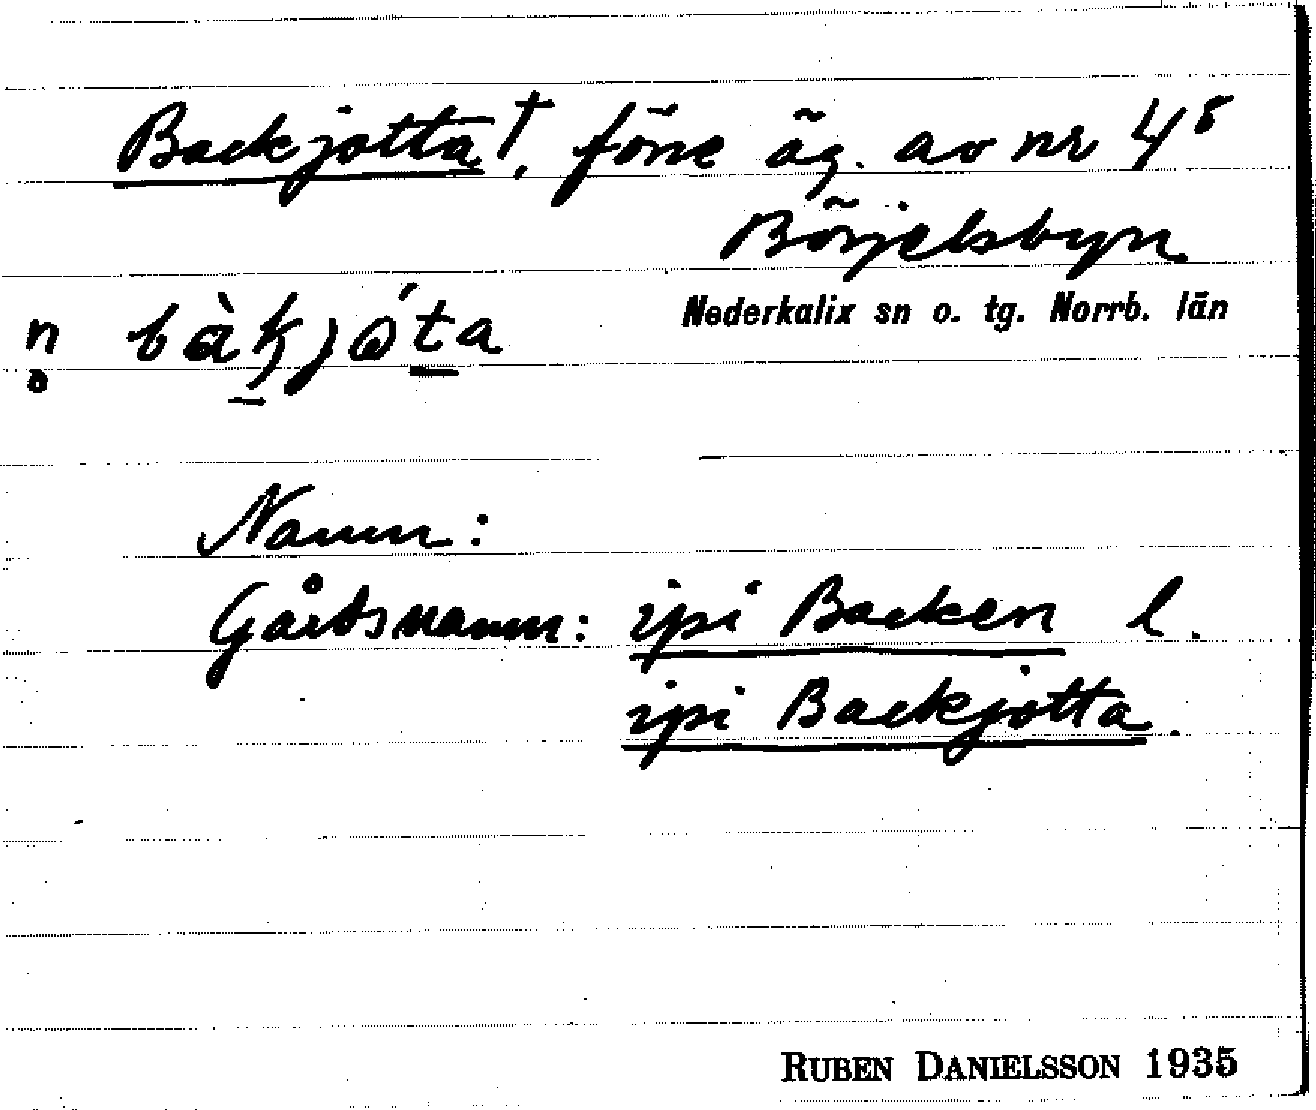 Backjotta †, förre äg. av nr 4⁸
Börjelsbyn
Nederkalix sn o. tg. Norrb. län
n̥ bàk̠jɷ́t̠a
Namn:
Gårdsnamn: ipi Backen l.
ipi Backjotta.
RUBEN DANIELSSON 1935